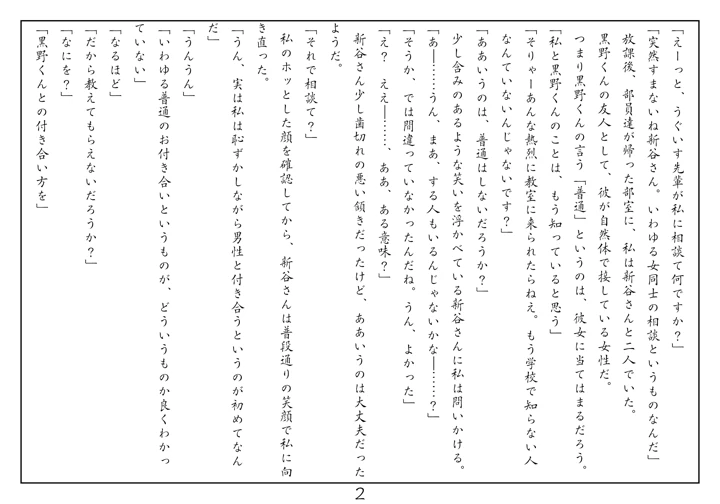 「えーっと、うぐいす先輩が私に相談て何ですか？」
「突然すまないね新谷さん。いわゆる女同士の相談というものなんだ」
放課後、部員達が帰った部室に、私は新谷さんと二人でいた。
黒野くんの友人として、彼が自然体で接している女性だ。
つまり黒野くんの言う「普通」というのは、彼女に当てはまるだろう。
「私と黒野くんのことは、もう知っていると思う」
「そりゃーあんな熱烈に教室に来られたらねえ。もう学校で知らない人
なんていないんじゃないです？」
「ああいうのは、普通はしないだろうか？」
少し含みのあるような笑いを浮かべている新谷さんに私は問いかける。
「あ―………うん、まあ、する人もいるんじゃないかな―………？」
「そうか、では間違っていなかったんだね。うん、よかった」
「え？　ええ―………、ああ、ある意味？」
新谷さん少し歯切れの悪い頷きだったけど、ああいうのは大丈夫だった
ようだ。
「それで相談て？」
私のホッとした顔を確認してから、新谷さんは普段通りの笑顔で私に向
き直った。
「うん、実は私は恥ずかしながら男性と付き合うというのが初めてなん
だ」
「うんうん」
「いわゆる普通のお付き合いというものが、どういうものか良くわかっ
ていない」
「なるほど」
「だから教えてもらえないだろうか？」
「なにを？」
「黒野くんとの付き合い方を」
2